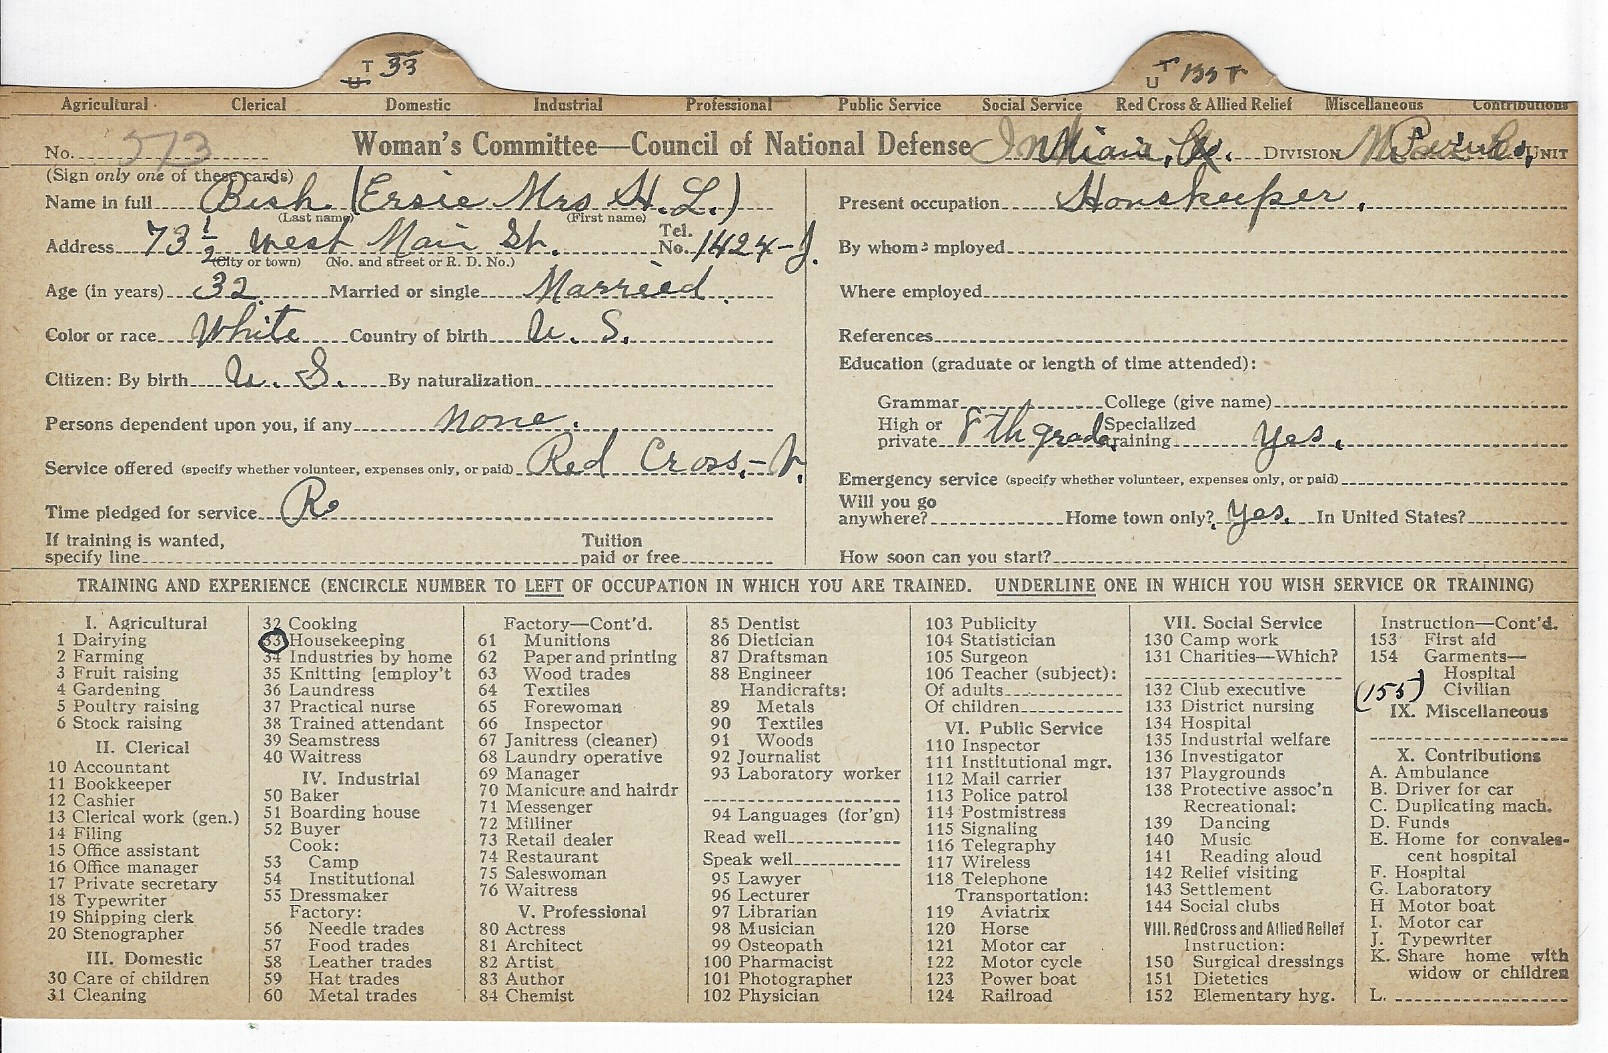 T 33 T 155 T
U U
Agricultural Clerical Domestic Industrial Professional Public Service Social Service Red Cross & Allied Relief Miscellaneous Contributions
No. 573 Woman's Committee—Council of National Defense Miami, Co. DIVISION UNIT
(Sign only one of these cards)
Name in full Bish (Ersie Mrs H. L.)
(Last name) (First name)
Address 73 1/2 West Main St. Tel. No. 1424-J.
(City or town) (No. and street or R. D. No.)
Age (in years) 32 Married or single Married
Color or race White Country of birth U. S.
Citizen: By birth U. S. By naturalization
Persons dependent upon you, if any none.
Service offered (specify whether volunteer, expenses only, or paid) Red Cross,- V.
Time pledged for service R.
If training is wanted,
specify line Tuition paid or free
Present occupation Houskeeper.
By whom employed
Where employed
References
Education (graduate or length of time attended):
Grammar College (give name)
High or private 8th grade. Specialized training yes.
Emergency service (specify whether volunteer, expenses only, or paid)
Will you go anywhere? Home town only? yes. In United States?
How soon can you start?
TRAINING AND EXPERIENCE (ENCIRCLE NUMBER TO LEFT OF OCCUPATION IN WHICH YOU ARE TRAINED. UNDERLINE ONE IN WHICH YOU WISH SERVICE OR TRAINING)
I. Agricultural
1 Dairying
2 Farming
3 Fruit raising
4 Gardening
5 Poultry raising
6 Stock raising
II. Clerical
10 Accountant
11 Bookkeeper
12 Cashier
13 Clerical work (gen.)
14 Filing
15 Office assistant
16 Office manager
17 Private secretary
18 Typewriter
19 Shipping clerk
20 Stenographer
III. Domestic
30 Care of children
31 Cleaning
32 Cooking
33 Housekeeping
34 Industries by home
35 Knitting [employ't
36 Laundress
37 Practical nurse
38 Trained attendant
39 Seamstress
40 Waitress
IV. Industrial
50 Baker
51 Boarding house
52 Buyer
Cook:
53 Camp
54 Institutional
55 Dressmaker
Factory:
56 Needle trades
57 Food trades
58 Leather trades
59 Hat trades
60 Metal trades
Factory—Cont'd.
61 Munitions
62 Paper and printing
63 Wood trades
64 Textiles
65 Forewoman
66 Inspector
67 Janitress (cleaner)
68 Laundry operative
69 Manager
70 Manicure and hairdr
71 Messenger
72 Milliner
73 Retail dealer
74 Restaurant
75 Saleswoman
76 Waitress
V. Professional
80 Actress
81 Architect
82 Artist
83 Author
84 Chemist
85 Dentist
86 Dietician
87 Draftsman
88 Engineer
Handicrafts:
89 Metals
90 Textiles
91 Woods
92 Journalist
93 Laboratory worker
94 Languages (for'gn)
Read well
Speak well
95 Lawyer
96 Lecturer
97 Librarian
98 Musician
99 Osteopath
100 Pharmacist
101 Photographer
102 Physician
103 Publicity
104 Statistician
105 Surgeon
106 Teacher (subject):
Of adults
Of children
VI. Public Service
110 Inspector
111 Institutional mgr.
112 Mail carrier
113 Police patrol
114 Postmistress
115 Signaling
116 Telegraphy
117 Wireless
118 Telephone
Transportation:
119 Aviatrix
120 Horse
121 Motor car
122 Motor cycle
123 Power boat
124 Railroad
VII. Social Service
130 Camp work
131 Charities—Which?
132 Club executive
133 District nursing
134 Hospital
135 Industrial welfare
136 Investigator
137 Playgrounds
138 Protective assoc'n
Recreational:
139 Dancing
140 Music
141 Reading aloud
142 Relief visiting
143 Settlement
144 Social clubs
VIII. Red Cross and Allied Relief
Instruction:
150 Surgical dressings
151 Dietetics
152 Elementary hyg.
Instruction—Cont'd.
153 First aid
154 Garments—
Hospital
(155) Civilian
IX. Miscellaneous
X. Contributions
A. Ambulance
B. Driver for car
C. Duplicating mach.
D. Funds
E. Home for convales-
cent hospital
F. Hospital
G. Laboratory
H Motor boat
I. Motor car
J. Typewriter
K. Share home with
widow or children
L.